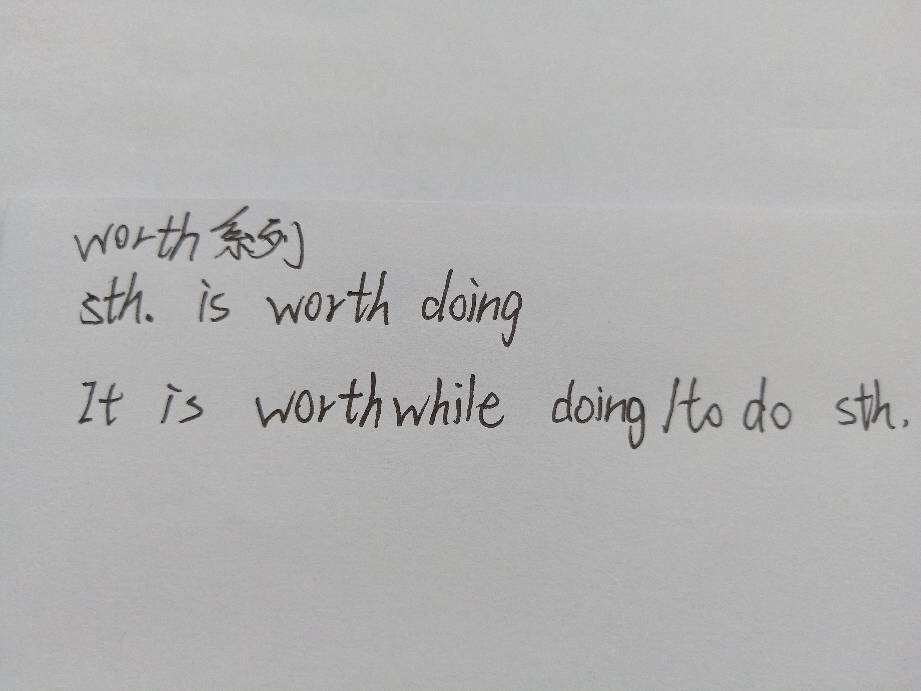 worth系列
sth. is worth doing
It is worthwhile doing/to do sth.